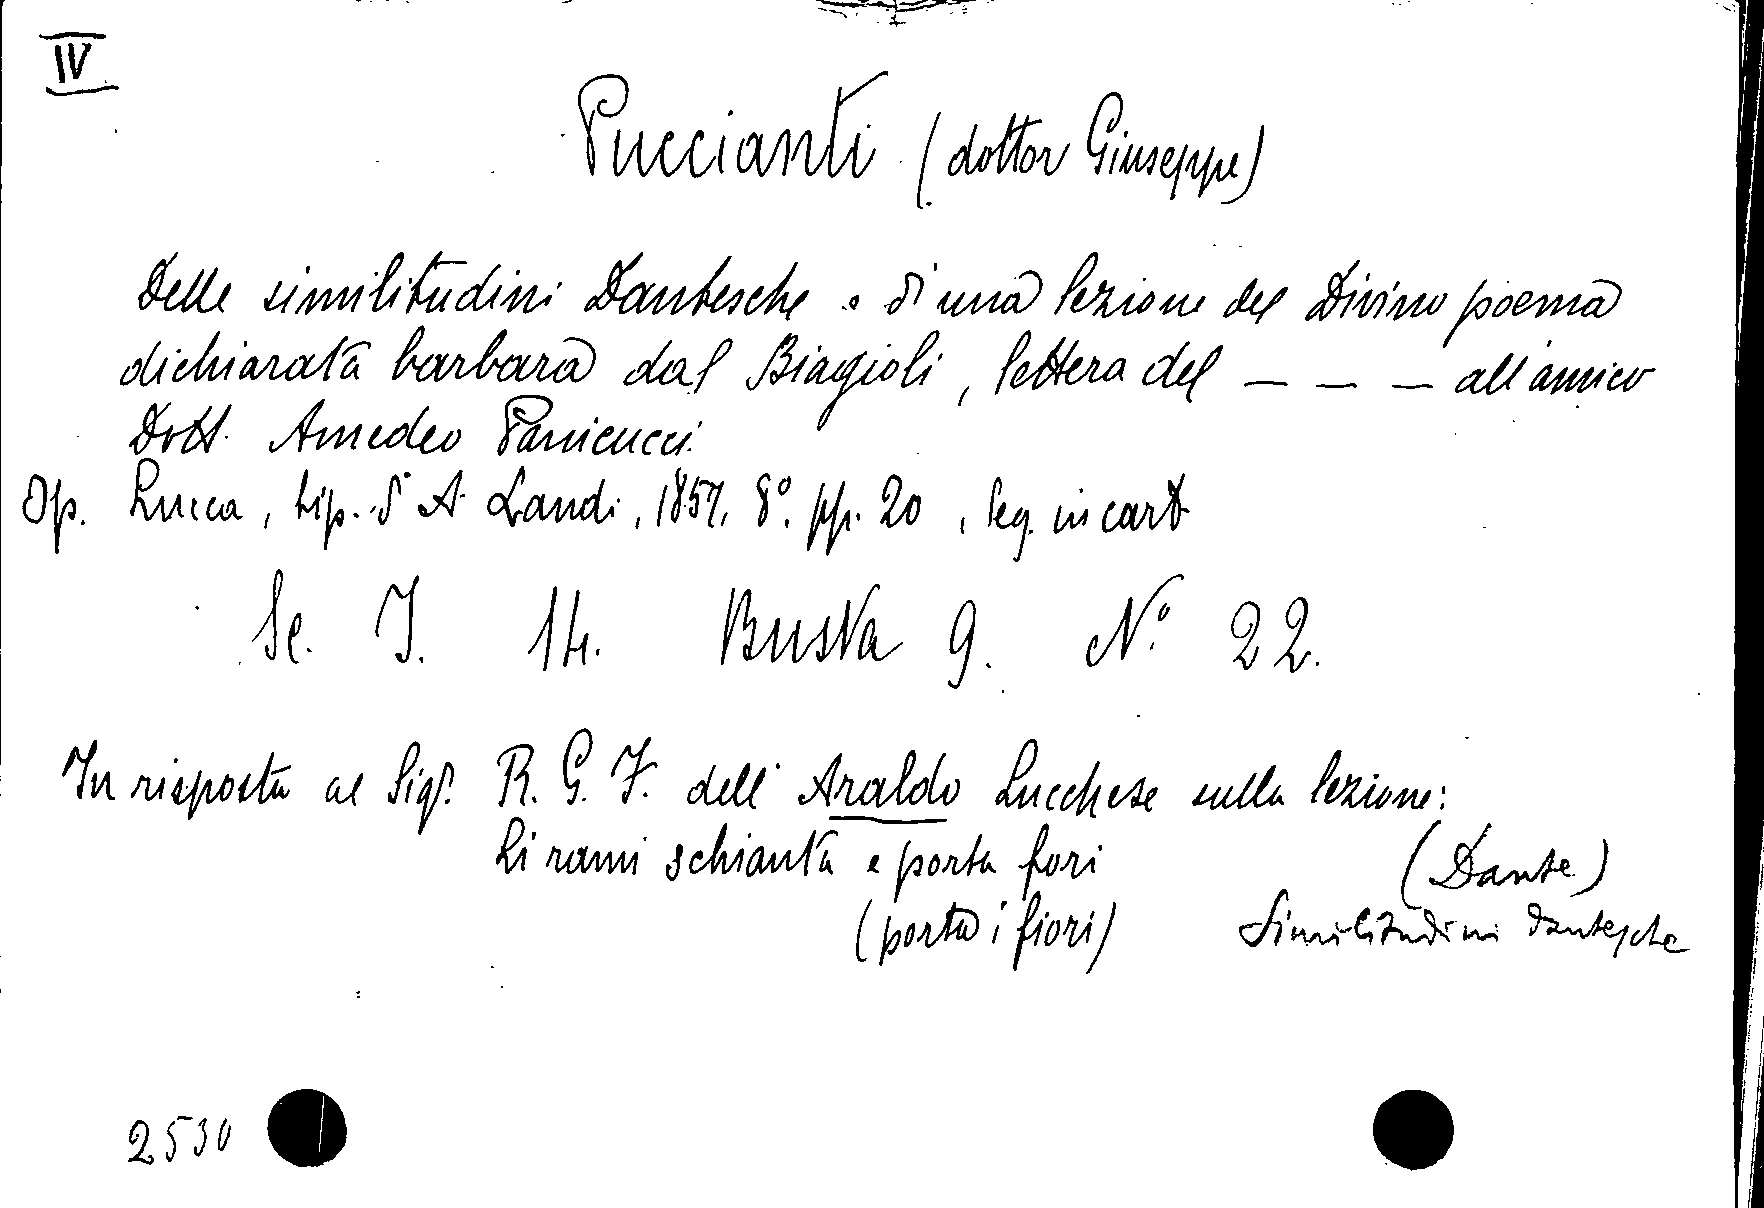 IV
Puccianti (dottor Giuseppe)
Delle similitudini Dantesche e di una lezione del Divino poema
dichiarata barbara dal Biagioli, lettera del _ _ _ all'amico
Dott. Amedeo Panicucci.
Op. Lucca, tip. di A. Landi, 1857, 8º. pp. 20, leg. in cart
Sc. I. 14. Busta 9. Nº. 22.
In risposta al Sigr. R. G. F. dell'Araldo Lucchese sulla lezione:
Li rami schianta e porta fori
(Dante)
(porta i fiori)
Similitudini dantesche
2530